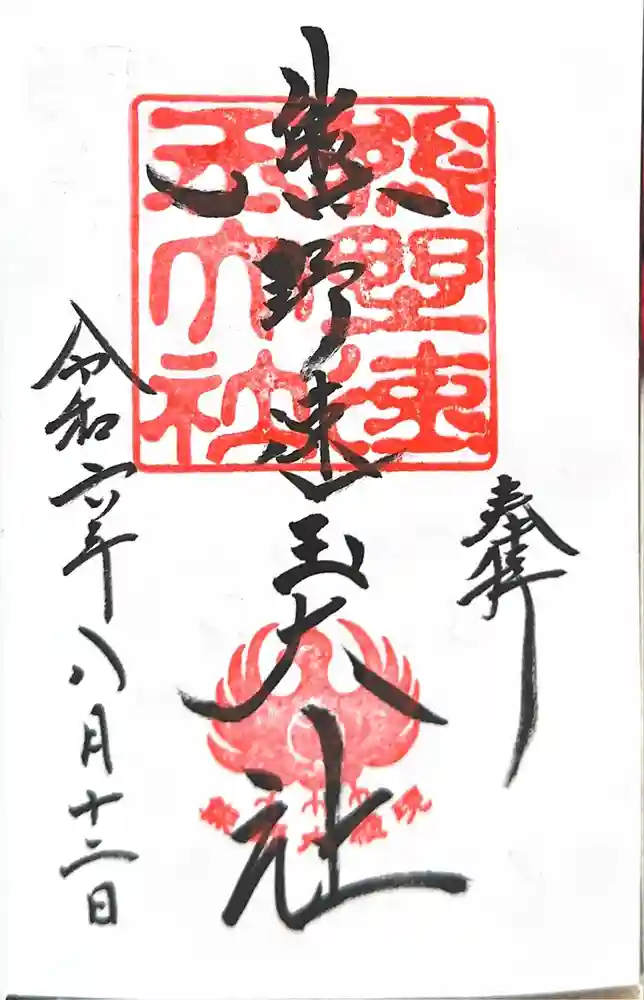 奉拝
熊野速
玉大社
熊野速玉大社
令和六年八月十二日